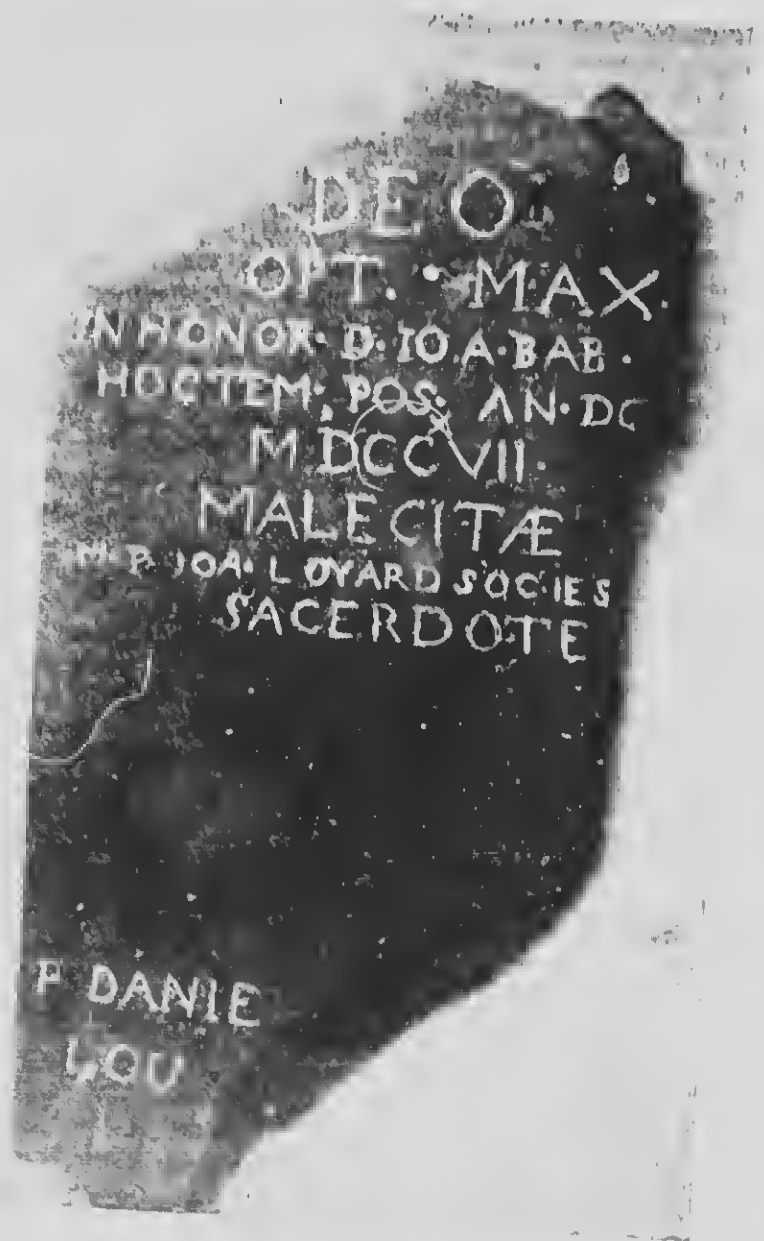 DEO
OPT. · MAX.
N HONOR · D · IO · A · BAB ·
HOC TEM · POS · AN · DC
MDCCVII.
MALECITÆ
M P · JOA · LOYARD SOC · IES
SACERDOTE
P DANIE
LOU